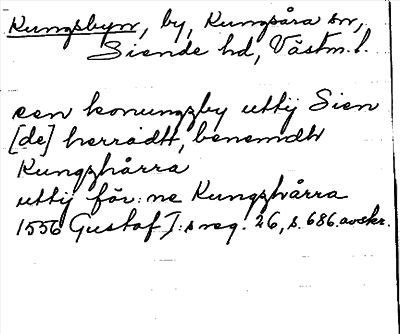 Kungsbyn, by, Kungsåra sn,
Siende hd, Västm. l.
een konungzby uttij Sien
[de] herradtt, benemdh
Kungzhårra
uttij för:ne Kungzhårra
1556 Gustaf I:s reg. 26, s. 686. avskr.